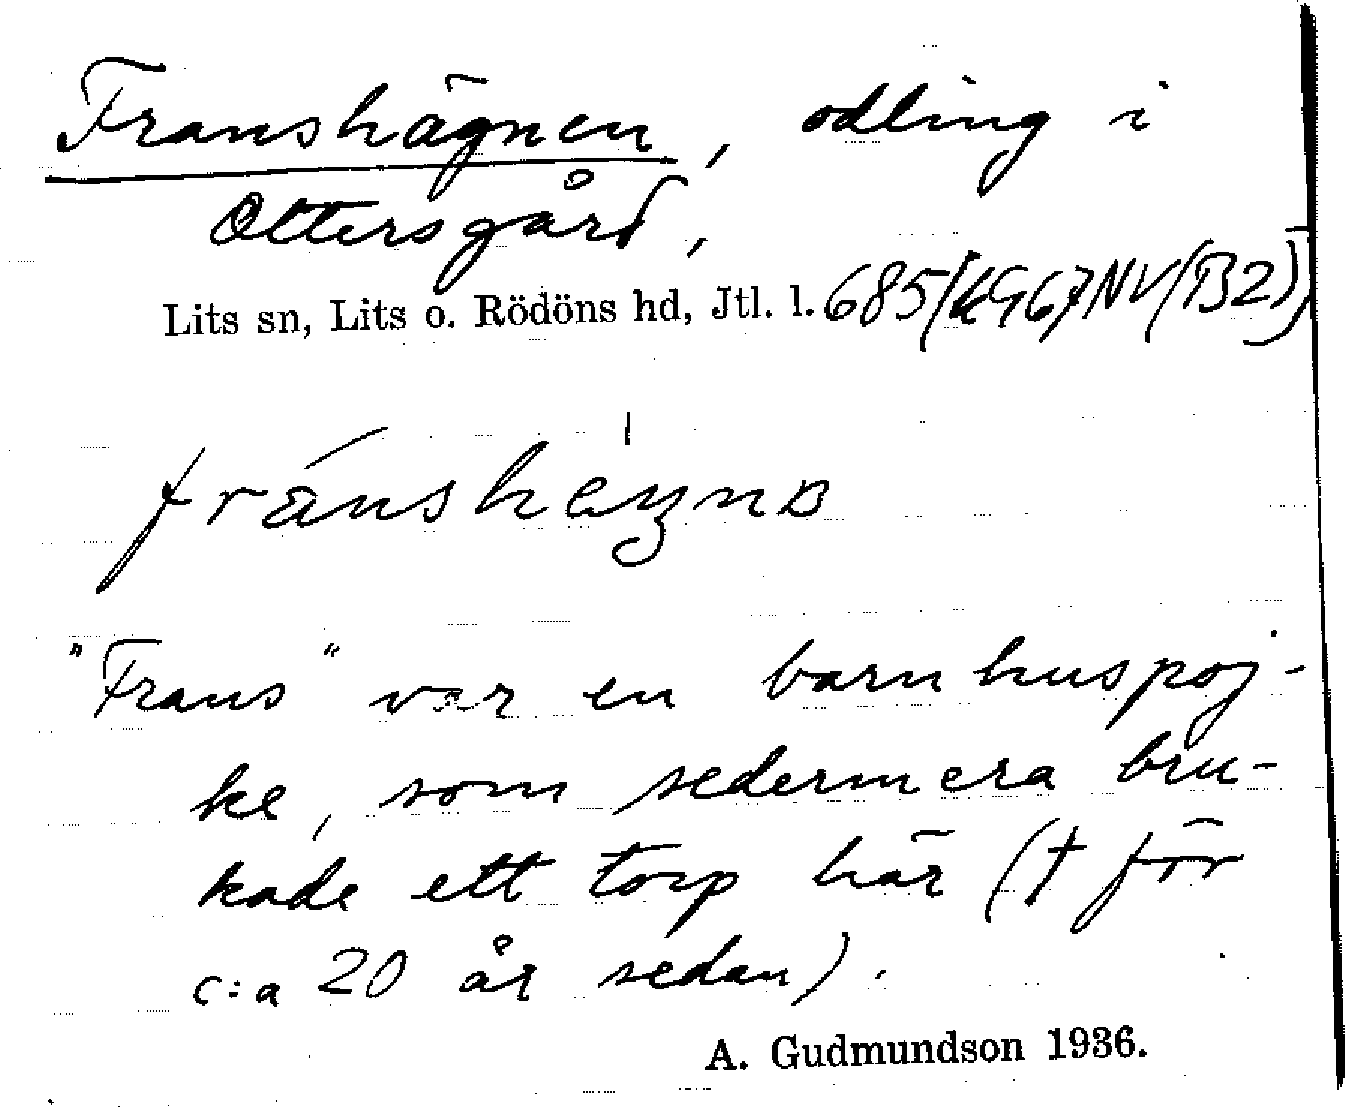 Franshägnen, odling i
Ottersgård,
Lits sn, Lits o. Rödöns hd, Jtl. l. 685
"Frans" var en barnhuspoj-
ke, som sedermera bru-
kade ett torp här († för
c:a 20 år sedan).
A. Gudmundson 1936.